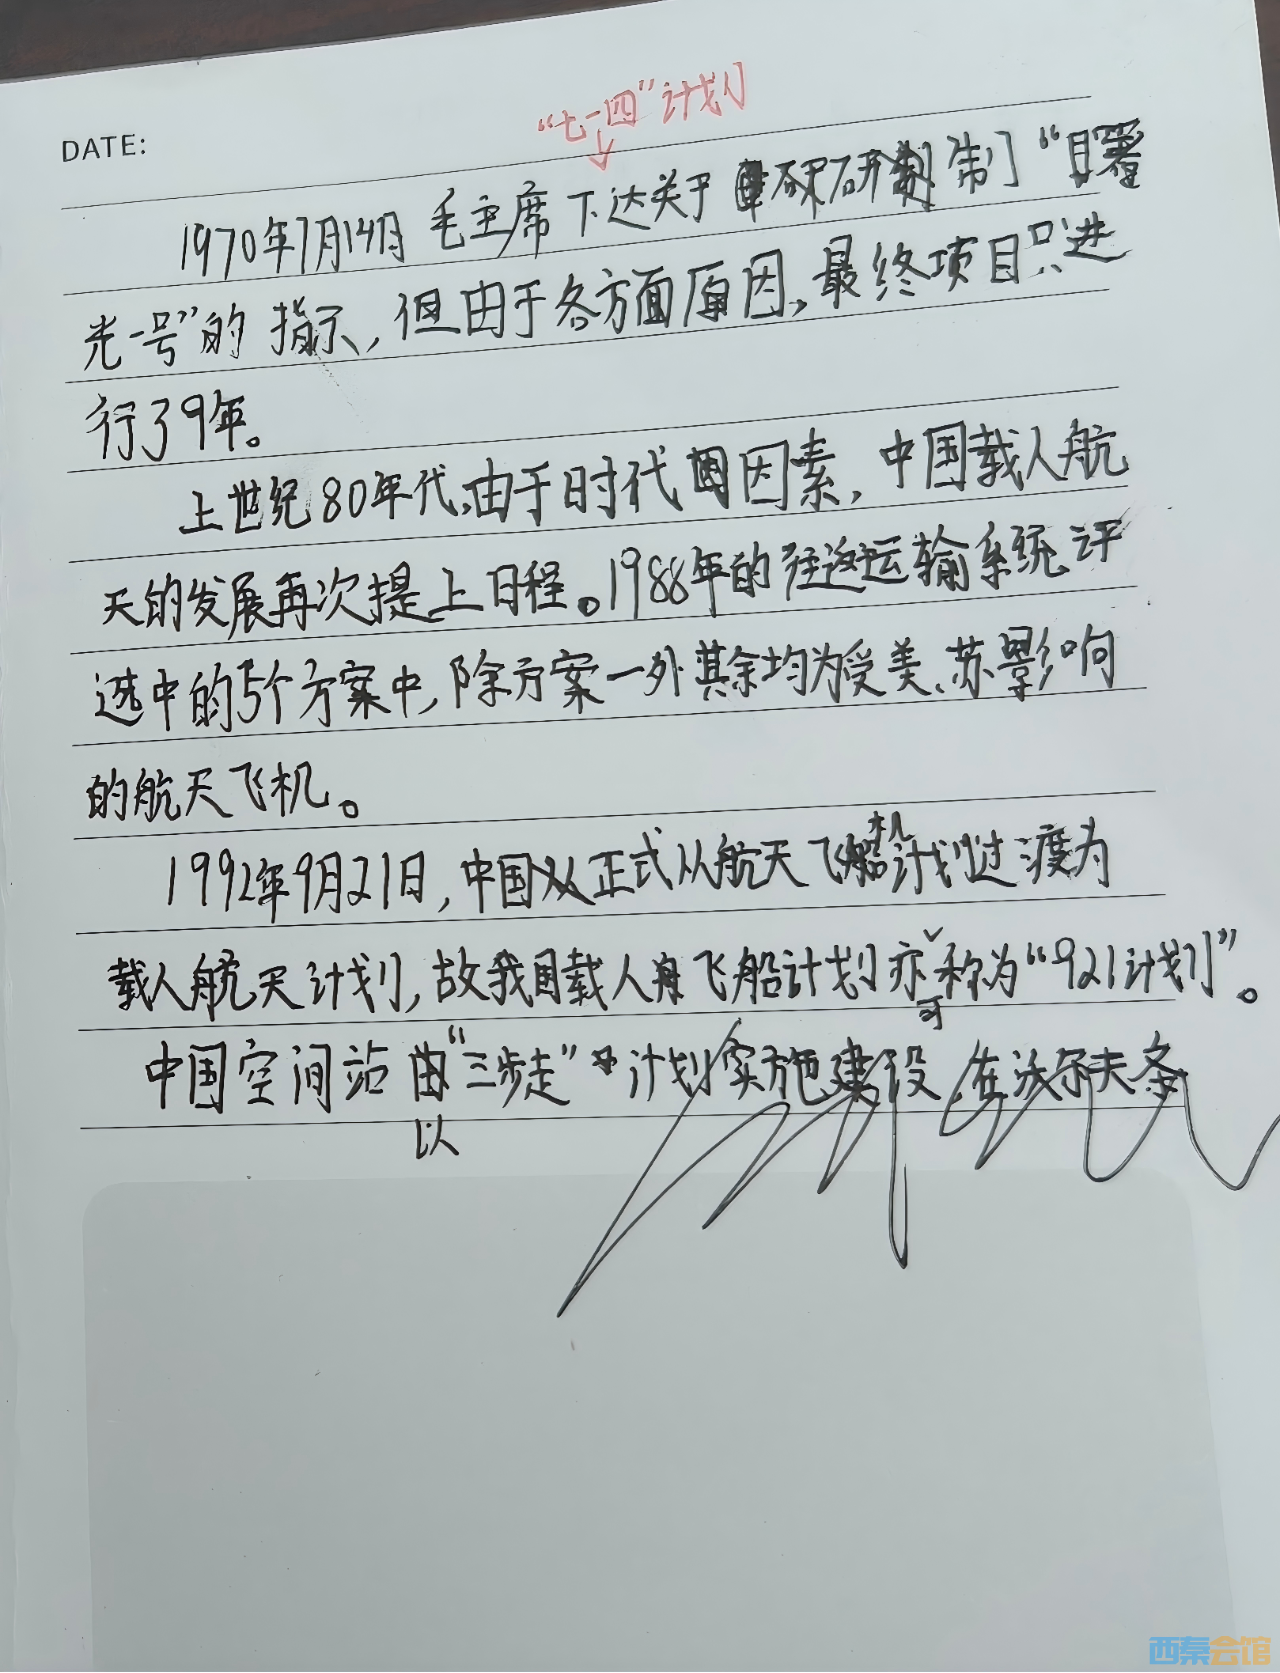 “七一四”计划
DATE:
1970年7月14日 毛主席下达关于研制“曙
光一号”的指示，但由于各方面原因，最终项目只进
行了9年。
上世纪80年代，由于时代因素，中国载人航
天的发展再次提上日程。1988年的往返运输系统评
选中的5个方案中，除方案一外其余均为受美、苏影响
的航天飞机。
1992年9月21日，中国正式从航天飞机计划过渡为
载人航天计划，故我国载人飞船计划亦可称为“921计划”。
中国空间站以“三步走”计划实施建设
以
西秦会馆